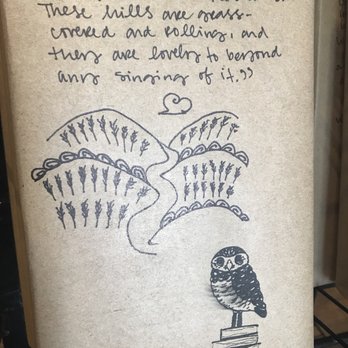 These hills are grass-
covered and rolling, and
they are lovely to beyond
any singing of it."